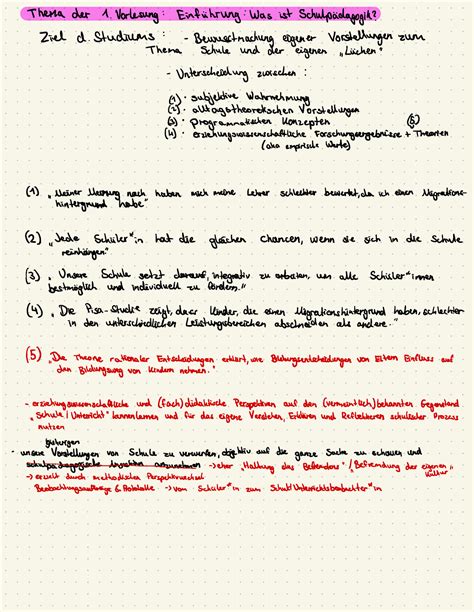 Thema der 1. Vorlesung: Einführung: Was ist Schulpädagogik?
Ziel d. Studiums: - Bewusstmachung eigener Vorstellungen zum
Thema Schule und der eigenen „Lücken"
- Unterscheidung zwischen:
(1) · subjektive Wahrnehmung
(2) · alltagstheoretischen Vorstellungen
(3) · Programmatischen Konzepten
(4) · erziehungswissenschaftliche Forschungsergebnisse + Theorien (5)
(aka empirische Werte)
(1) „Meiner Meinung nach haben mich meine Lehrer schlechter bewertet, da ich einen Migrations-
hintergrund habe"
(2) „Jede Schüler*in hat die gleichen Chancen, wenn sie sich in die Schule
reinhängen"
(3) „Unsere Schule setzt darauf, integrativ zu arbeiten, um alle Schüler*innen
bestmöglich und individuell zu fördern."
(4) „Die Pisa-Studie zeigt, dass Kinder, die einen Migrationshintergrund haben, schlechter
in den unterschiedlichen Leistungsbereichen abschneiden als andere."
(5) „Die Theorie rationaler Entscheidungen erklärt, wie Bildungsentscheidungen von Eltern Einfluss auf
den Bildungsweg von Kindern nehmen."
- erziehungswissenschaftliche und (fach)didaktische Perspektiven auf den (vermeintlich) bekannten Gegenstand
„Schule/Unterricht" kennenlernen und für das eigene Verstehen, Erklären und Reflektieren schulischer Prozesse
nutzen
bisherigen
- unsere Vorstellungen von Schule zu verwerfen, objektiv auf die ganze Sache zu schauen und
schulpädagogische anzunehmen → eher „Haltung des Befremdens"/„Befremdung der eigenen
Kultur"
→ erzielt durch methodischen Perspektivwechsel
Beobachtungsaufträge & Protokolle → von Schüler*in zum Schul/Unterrichtsbeobachter*in